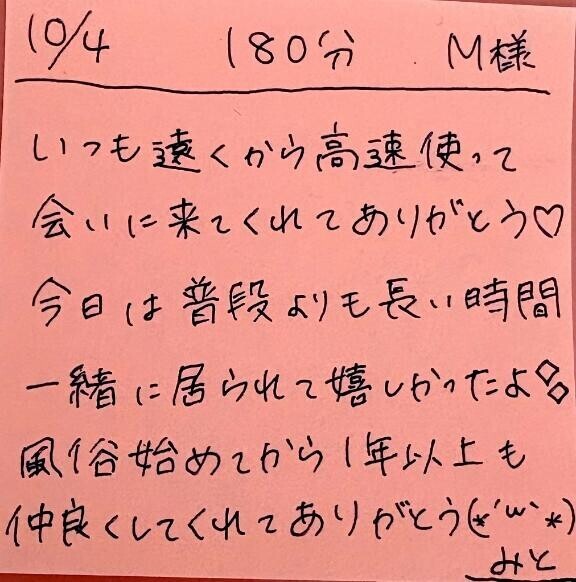 10/4 180分 M様
いつも遠くから高速使って
会いに来てくれてありがとう♡
今日は普段よりも長い時間
一緒に居られて嬉しかったよ◇◇
風俗始めてから1年以上も
仲良くしてくれてありがとう(*´ω`*)
みと